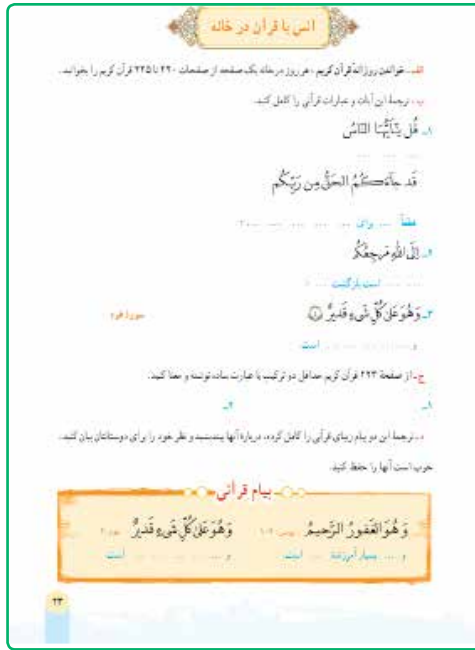 انس با قرآن در خانه
الف ـ خواندن روزانه قرآن کریم ، هر روز در خانه یک صفحه از صفحات ۲۲۰ تا ۲۲۵ قرآن کریم را بخوانید.
ب ـ ترجمهٔ این آیات و عبارات قرآنی را کامل کنید.
۱ـ قُل يٰٓأَيُّهَا النّاسُ
... ...
قَد جاءَكُمُ الحَقُّ مِن رَبِّكُم
قطعاً ... برای ... ... ... ...
۲ـ اِلَى اللّٰهِ مَرجِعُكُم
... ... است بازگشت ...
۳ـ وَهُوَ عَلىٰ كُلِّ شَیءٍ قَديرٌ سورهٔ هود
و ... ... است.
ج ـ از صفحهٔ ۲۲۳ قرآن کریم حداقل دو ترکیب یا عبارت ساده نوشته و معنا کنید.
۱ـ ۲ـ
د ـ ترجمهٔ این دو پیام زیبای قرآنی را کامل کرده، دربارهٔ آنها بیندیشید و نظر خود را برای دوستانتان بیان کنید.
خوب است آنها را حفظ کنید.
پیام قرآنی
وَ هُوَ الغَفورُ الرَّحيمُ وَهُوَ عَلىٰ كُلِّ شَیءٍ قَديرٌ
و ... بسیار آمرزنده ... است. و ... ... است.
۲۳